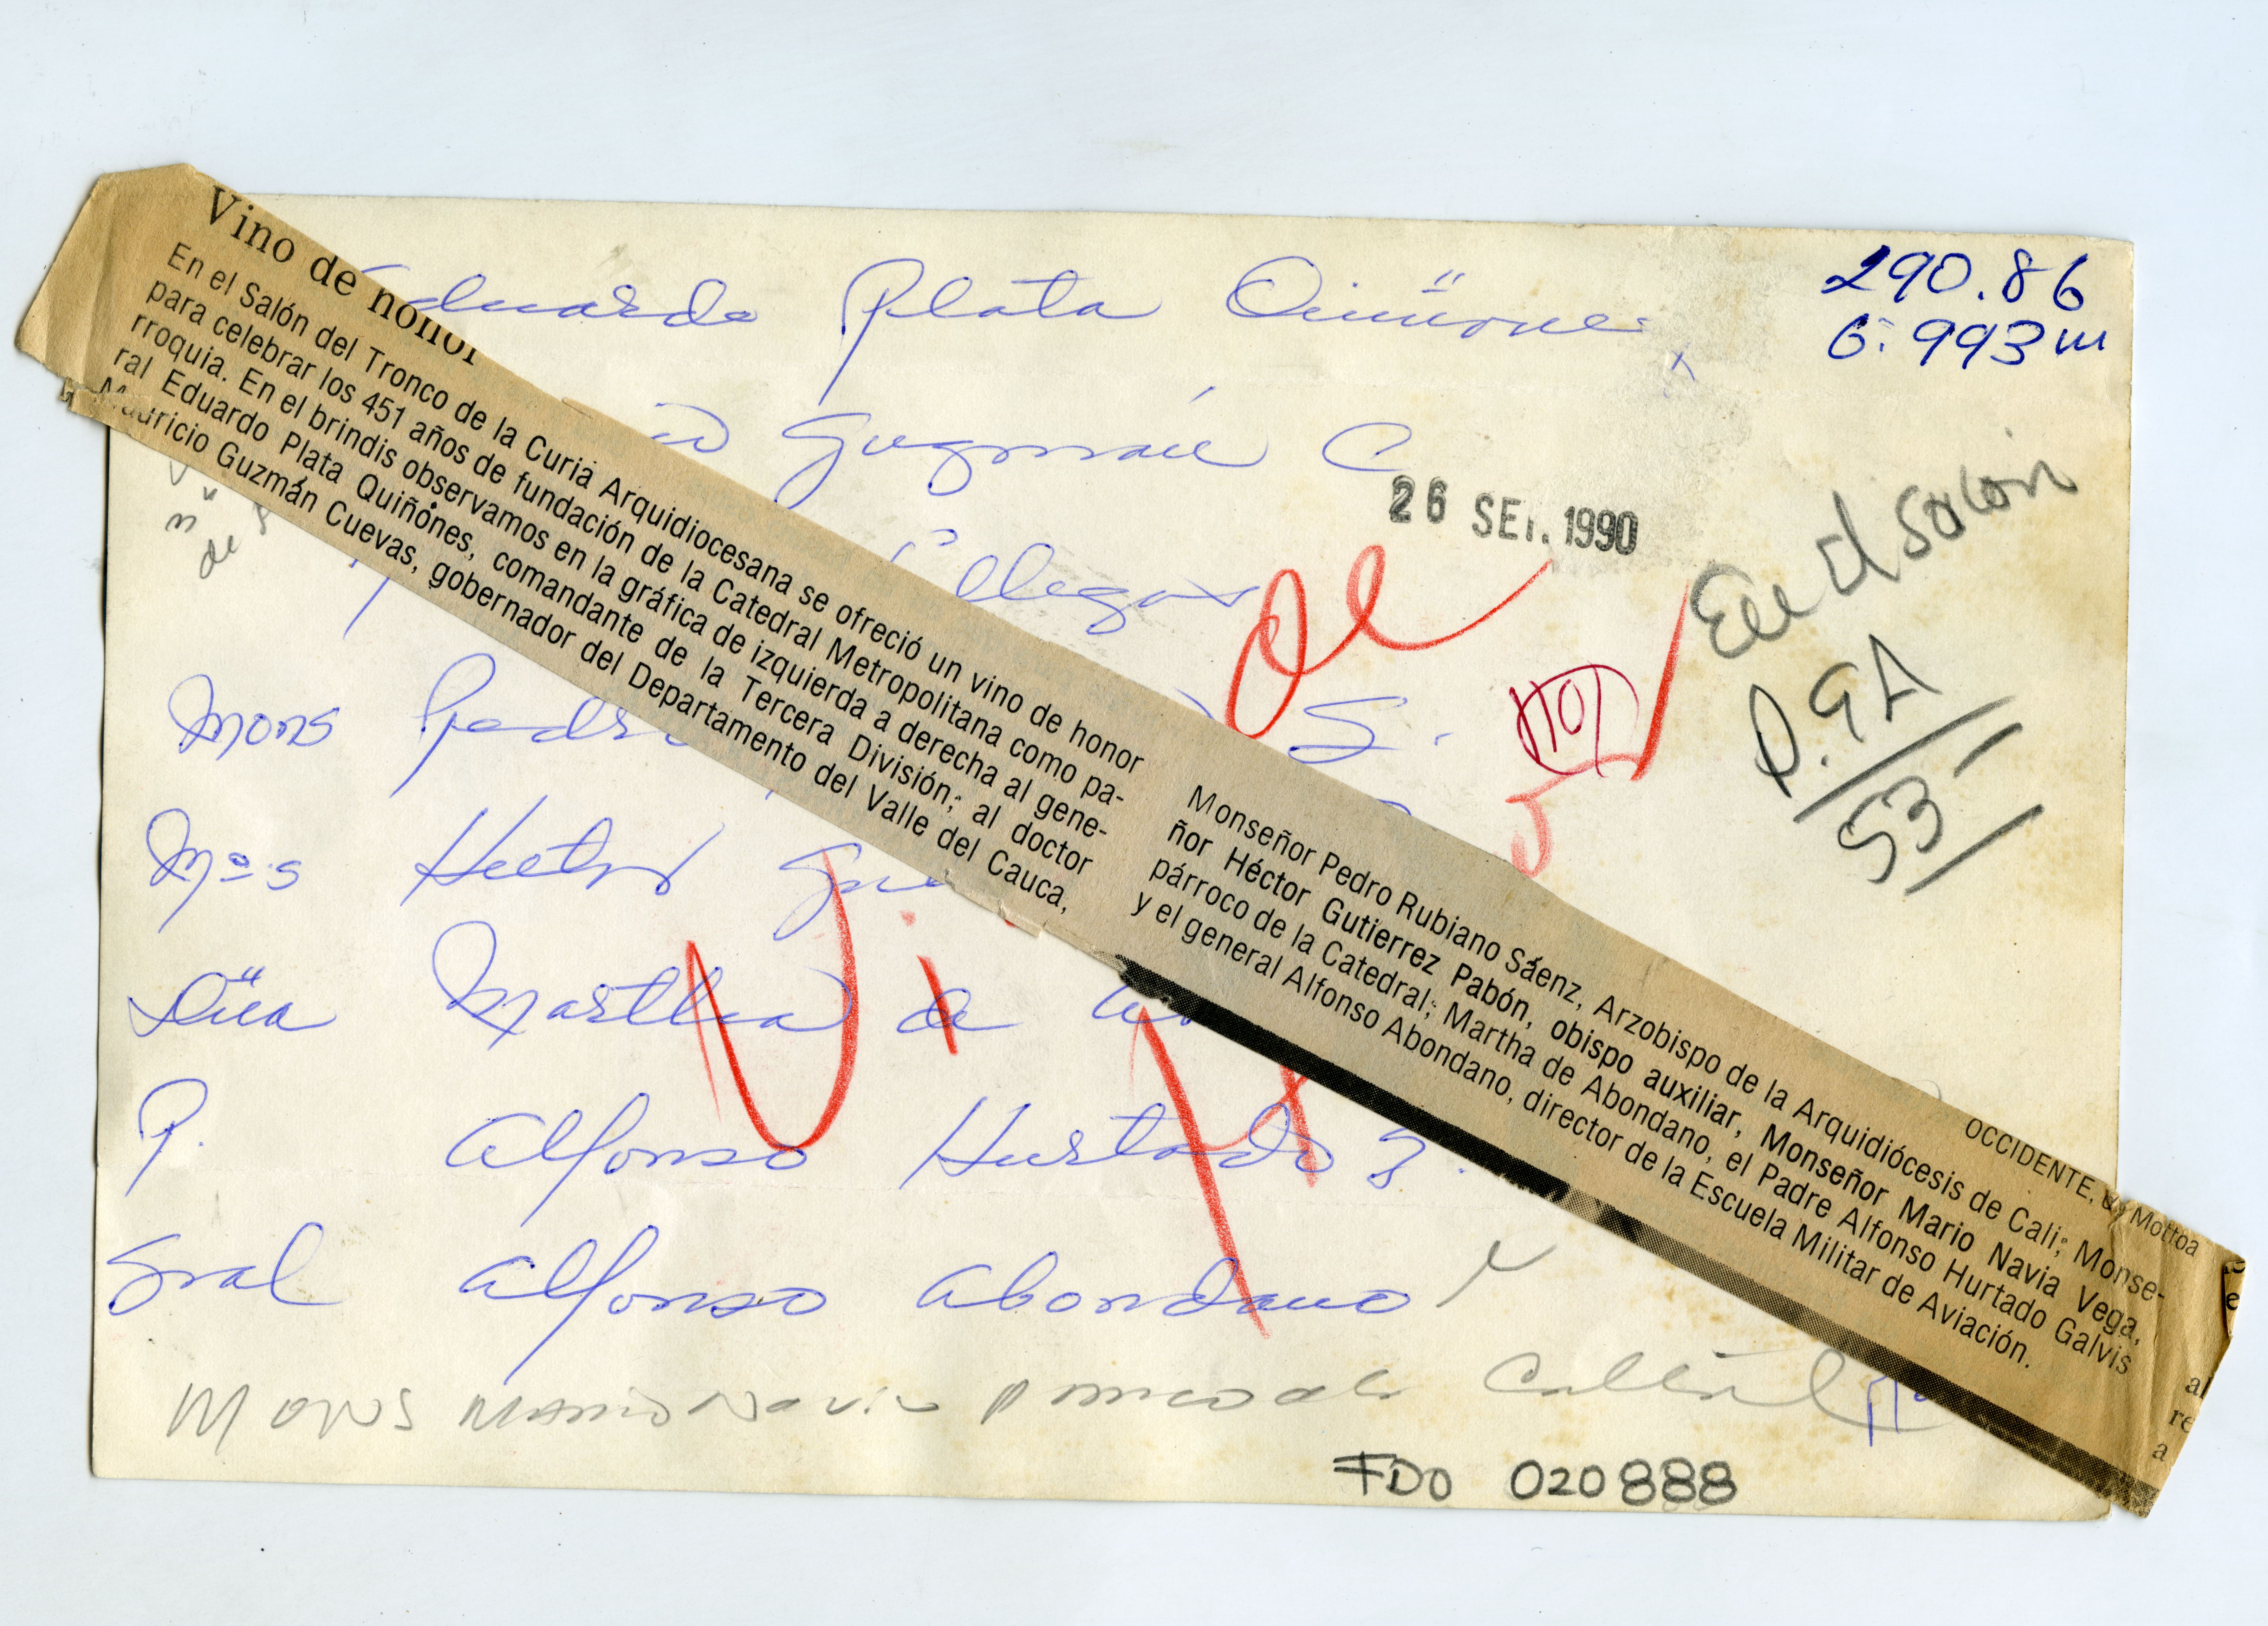 Vino de honor
En el Salón del Tronco de la Curia Arquidiocesana se ofreció un vino de honor
para celebrar los 451 años de fundación de la Catedral Metropolitana como pa-
rroquia. En el brindis observamos en la gráfica de izquierda a derecha al gene-
ral Eduardo Plata Quiñónes, comandante de la Tercera División; al doctor
Mauricio Guzmán Cuevas, gobernador del Departamento del Valle del Cauca,
Monseñor Pedro Rubiano Sáenz, Arzobispo de la Arquidiócesis de Cali; Monse-
ñor Héctor Gutierrez Pabón, obispo auxiliar, Monseñor Mario Navia Vega,
párroco de la Catedral; Martha de Abondano, el Padre Alfonso Hurtado Galvis
y el general Alfonso Abondano, director de la Escuela Militar de Aviación.
OCCIDENTE, Mottoa
al
re
a
290.86
6: 993 m
Eduardo Plata Quiñone
Guzmán C
26 SET. 1990
llegas
En el salon
P. 9A
53
HOY
Mons Pedro S.
Mons Hector Gu
Dña Martha de
P. Alfonso Hurtado G.
Gral Alfonso Abondano
Mons Mario Navia parroco de Catedral
FDO 020888